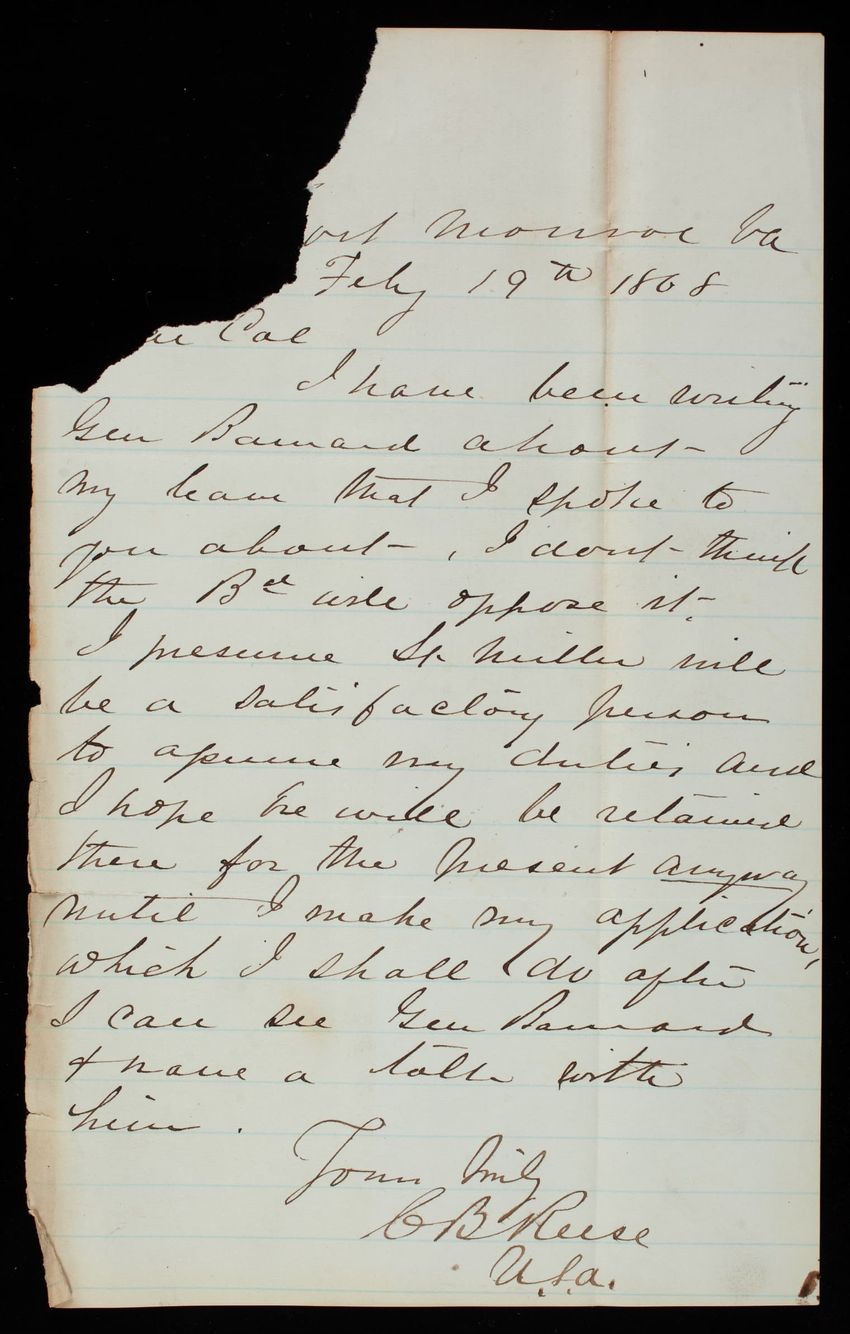 ort Monroe Va
Feby 19th 1868
Col
I have been writing
Gen Barnard about
my leave that I spoke to
you about, I dont think
the Bd will oppose it.
I presume Lt Miller will
be a satisfactory person
to assume my duties and
I hope he will be retained
there for the present anyway
until I make my application,
which I shall do after
I can see Gen Barnard
& have a talk with
him.
Yours truly
C B Reese
U.S.A.